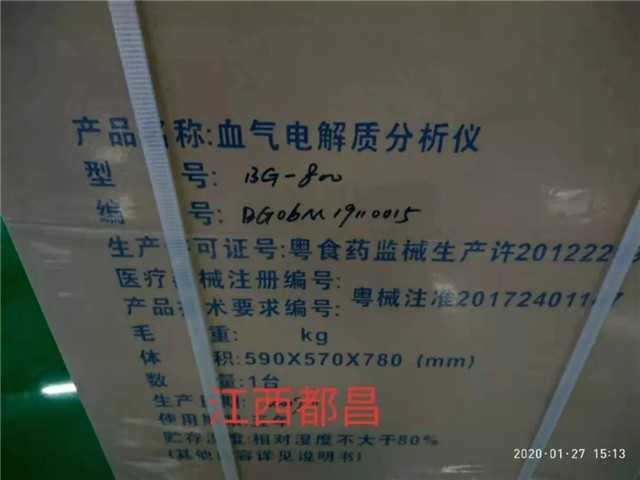 产品名称:血气电解质分析仪
型 号: BG-800
编 号: BG06M19110015
生产许可证号:粤食药监械生产许201222
医疗器械注册编号:
产品技术要求编号: 粤械注准201724011
毛 重: kg
体 积:590X570X780 (mm)
数 量:1台
生产日期:
江西都昌
使用期限:五年
贮存湿度:相对湿度不大于80%
(其他内容详见说明书)
2020·01·27 15:13